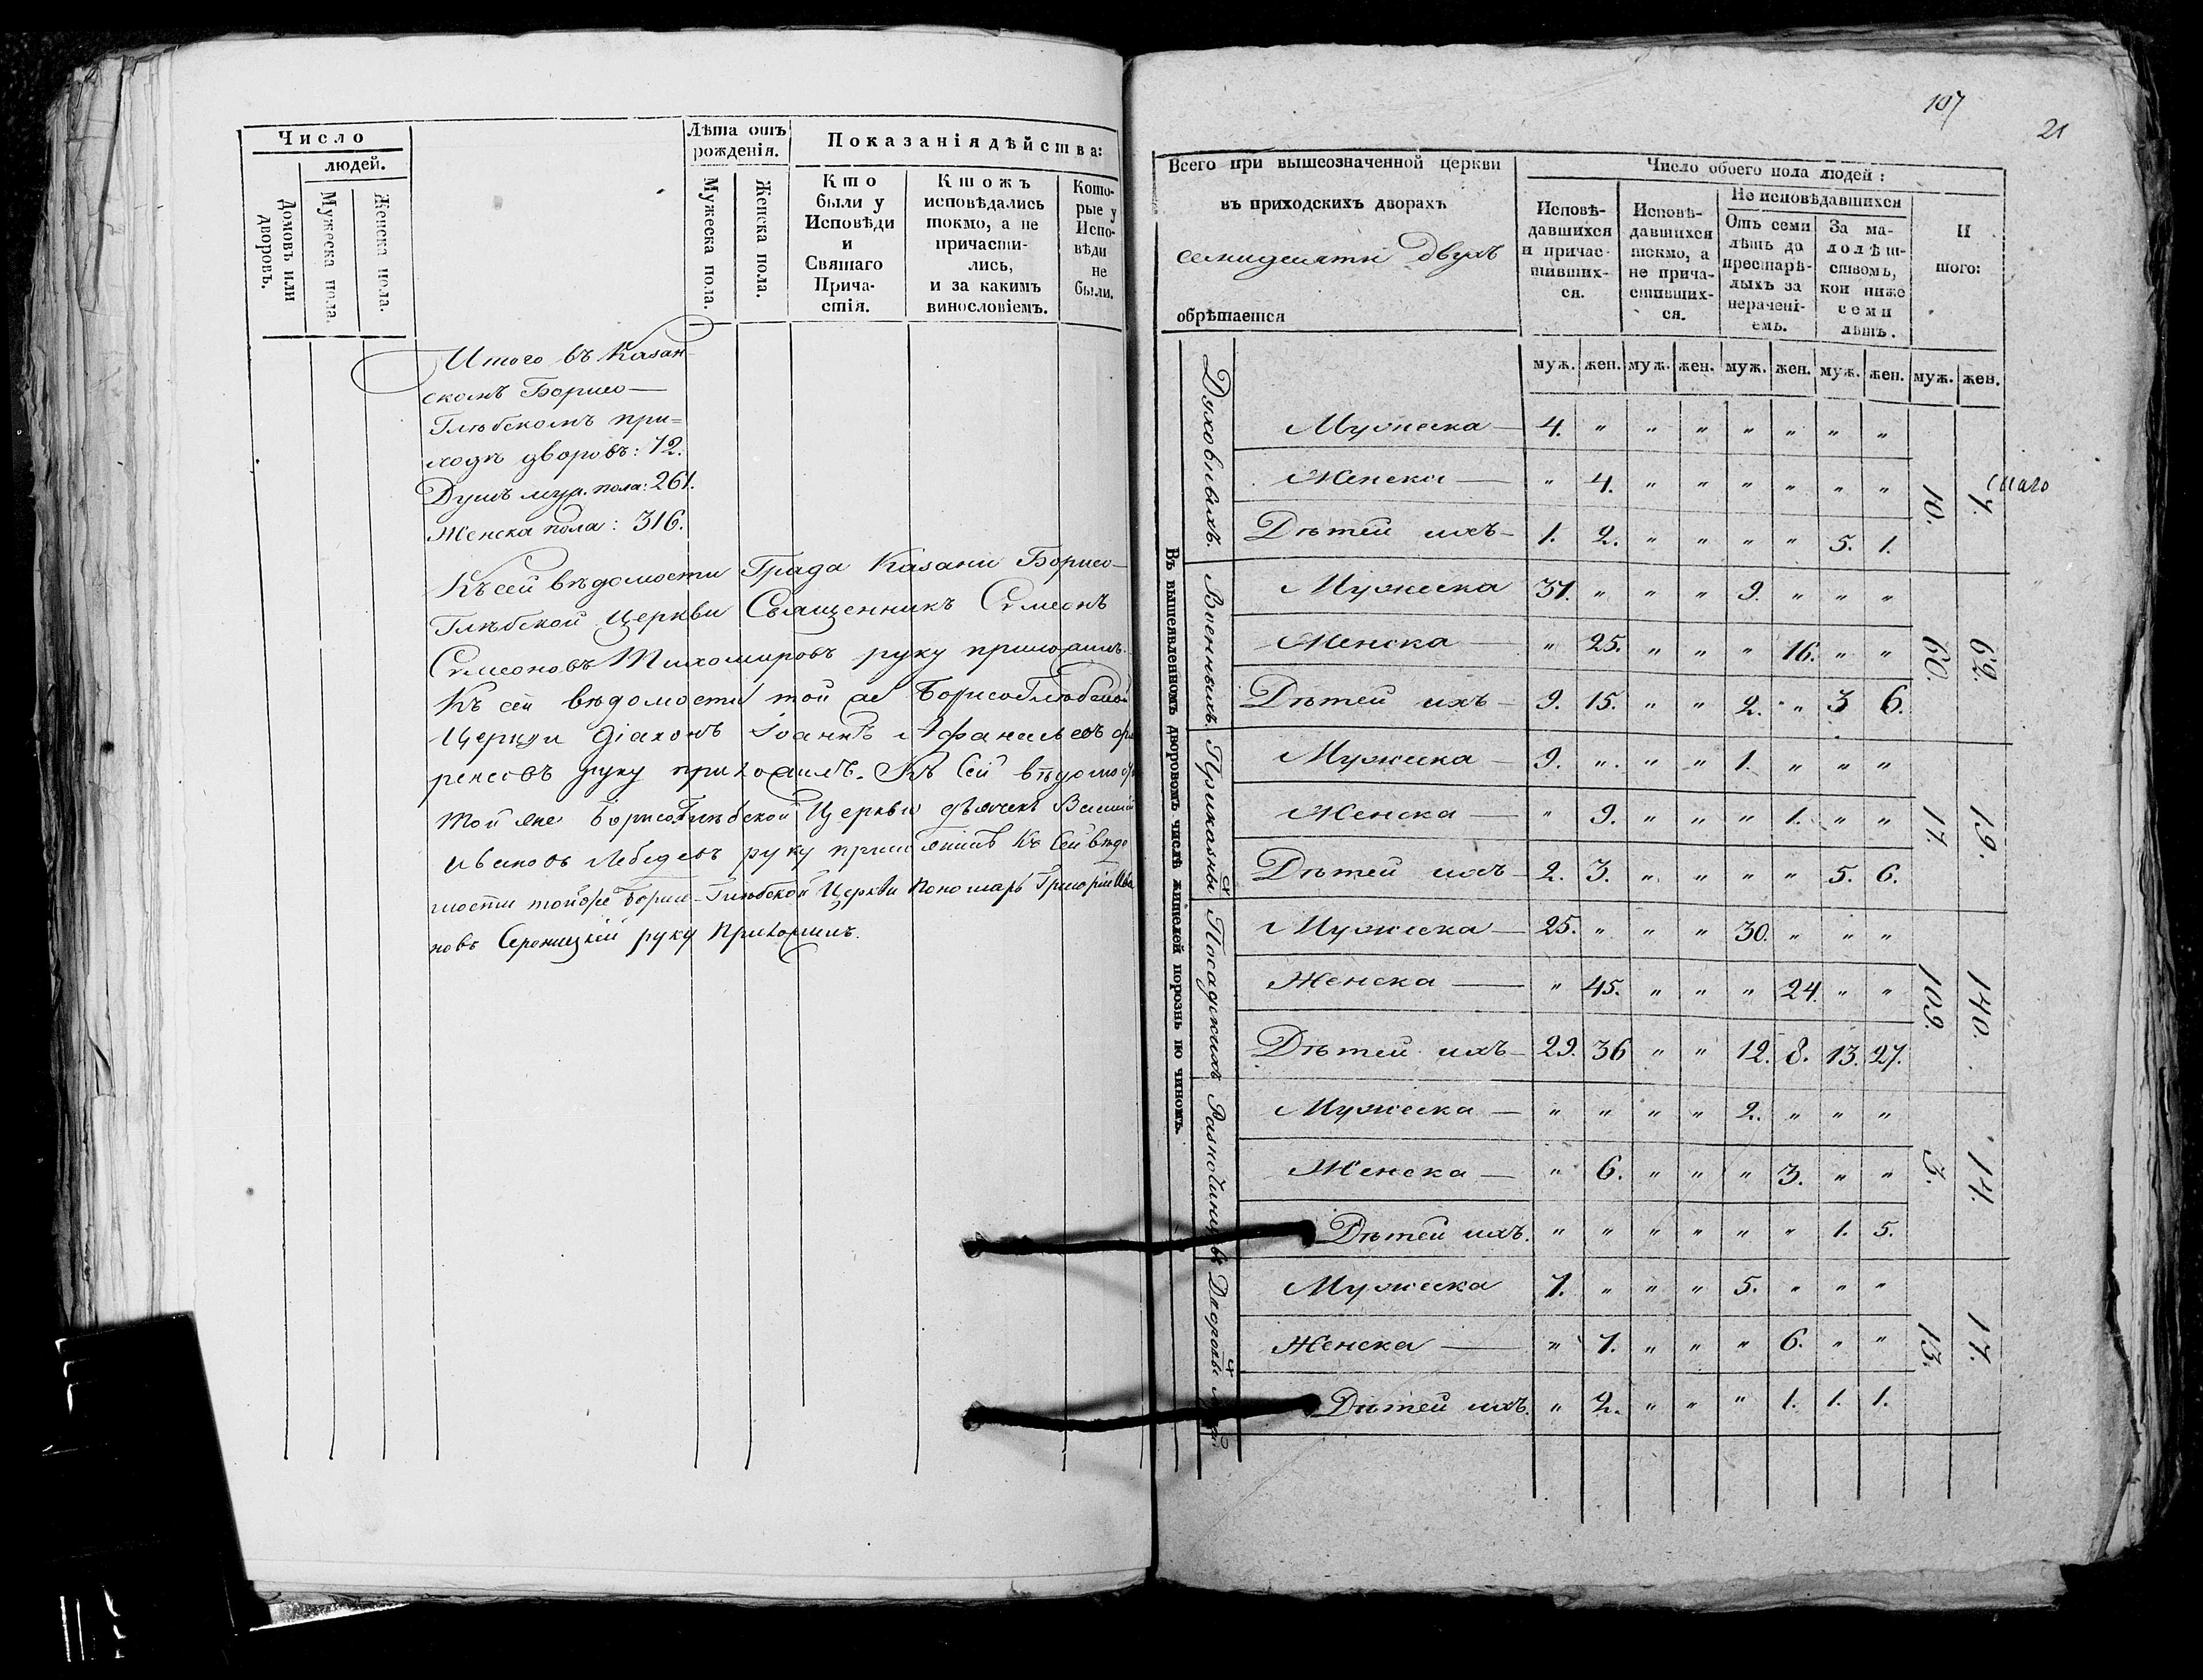 Число
людей.
Домовъ или дворовъ.
Мужеска пола.
Женска пола.
Лѣта отъ рожденія.
Мужеска пола.
Женска пола.
Показанія дѣйства:
Кто были у Исповѣди и Святаго Причастія.
Ктожъ исповѣдались токмо, а не причастились, и за какимъ винословіемъ.
Которые у Исповѣди не были.
Итого въ Казан
скомъ Борисо—
Глѣбскомъ при=
ходѣ дворовъ: 72.
Душъ муж. пола: 261.
Женска пола: 316.
Къ сей вѣдомости Града Казани Борисо—
Глѣбской Церкви Священникъ Симеонъ
Симеоновъ Тихомировъ руку приложилъ.
Къ сей вѣдомости той же Борисоглѣбской
Церкви Діаконъ Іоаннъ Афанасьевъ
руку приложилъ. Къ Сей вѣдомос
той же Борисоглѣбской Церкви дьячекъ Василій
Ивановъ Лебедевъ руку приложилъ Къ Сей вѣдо
мости той же Борисо-Глѣбской Церкви Пономарь Григорій Ива
новъ руку Приложилъ.
107
21
Всего при вышеозначенной церкви
въ приходскихъ дворахъ
семидесяти двухъ
обрѣтается
Число обоего пола людей:
Исповѣдавшихся и причастившихся.
Исповѣдавшихся токмо, а не причастившихся.
Не исповѣдавшихся
Отъ семи лѣтъ до престарѣлыхъ за нераченіемъ.
За малолѣтствомъ, кои ниже семи лѣтъ.
Итого:
муж. жен. муж. жен. муж. жен. муж. жен. муж. жен.
Въ вышеявленномъ дворовомъ числѣ жителей порознь по чиномъ.
Духовныхъ.
Мужеска — 4. " " " " " " "
Женска — " 4. " " " " " "
Дѣтей ихъ — 1. 2. " " " " 5. 1.
10. 7.
Военныхъ.
Мужеска 37. " " " 9. " " "
Женска — " 25. " " " 16. " "
Дѣтей ихъ — 9. 15. " " 2. " 3 6.
60. 62.
Приказныхъ
Мужеска — 9. " " " 1. " " "
Женска — " 9. " " " 1. " "
Дѣтей ихъ — 2. 3. " " " " 5. 6.
17. 19.
Посадскихъ
Мужеска — 25. " " " 30. " " "
Женска — " 45. " " " 24. " "
Дѣтей ихъ — 29. 36 " " 12. 8. 13. 27.
109. 140.
Разночинцовъ
Мужеска — " " " " 2. " " "
Женска — " 6. " " " 3. " "
Дѣтей ихъ. " " " " " " 1. 5.
3. 14.
Дворовыхъ
Мужеска 7. " " " 5. " " "
Женска — " 7. " " " 6. " "
Дѣтей ихъ. " 2. " " " 1. 1. 1.
13. 17.